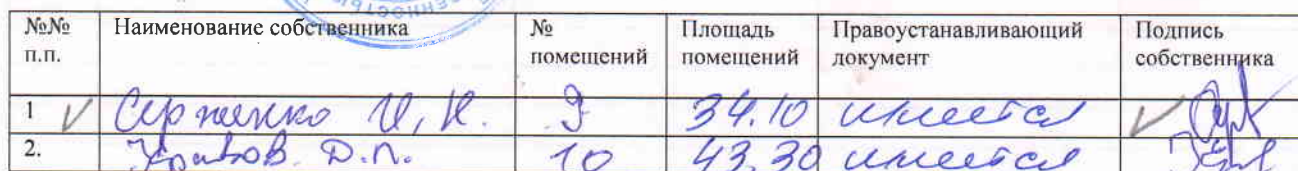 №№ п.п. Наименование собственника № помещений Площадь помещений Правоустанавливающий документ Подпись собственника
1 И. К. 9 34.10 имеется
2. Д.П. 10 43.30 имеется